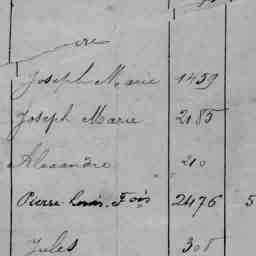 re
Joseph Marie 1459
Joseph Marie 2185
Alexandre 210
Pierre Louis Fois 2476 5
Jules 308